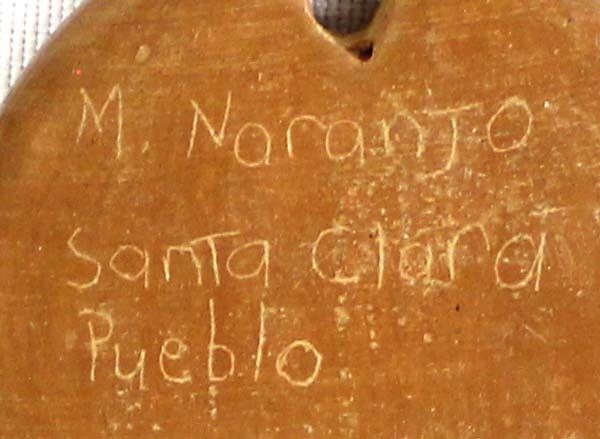 M. Naranjo
Santa Clara
Pueblo